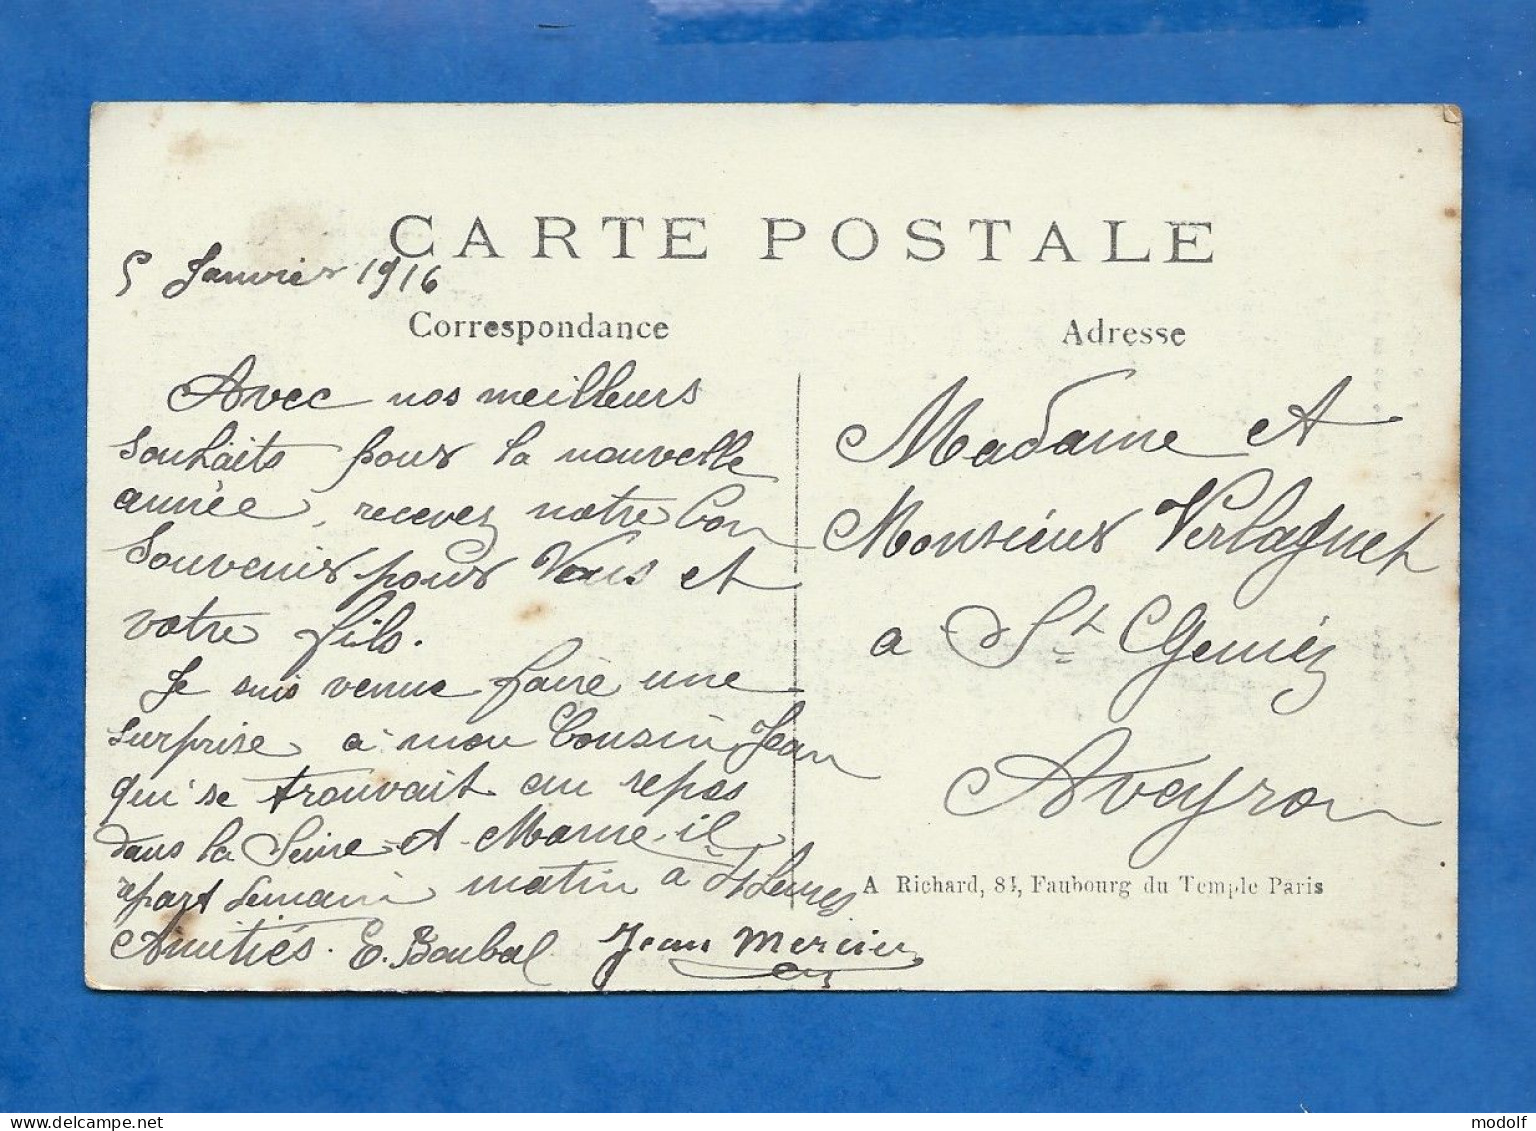 CARTE POSTALE
5 Janvier 1916
Correspondance
Avec nos meilleurs
souhaits pour la nouvelle
année, recevez notre bon
souvenir pour Vous et
votre fils.
Je suis venue faire une
surprise a mon Cousin Jean
qui se trouvait au repos
dans la Seine-et-Marne, il
repart demain matin a 4 heures
Amitiés. E. Boubal Jean Mercier
Adresse
Madame et
Monsieur Verlaguet
a St Geniez
Aveyron
A Richard, 84, Faubourg du Temple Paris
delcampe.net
modolf